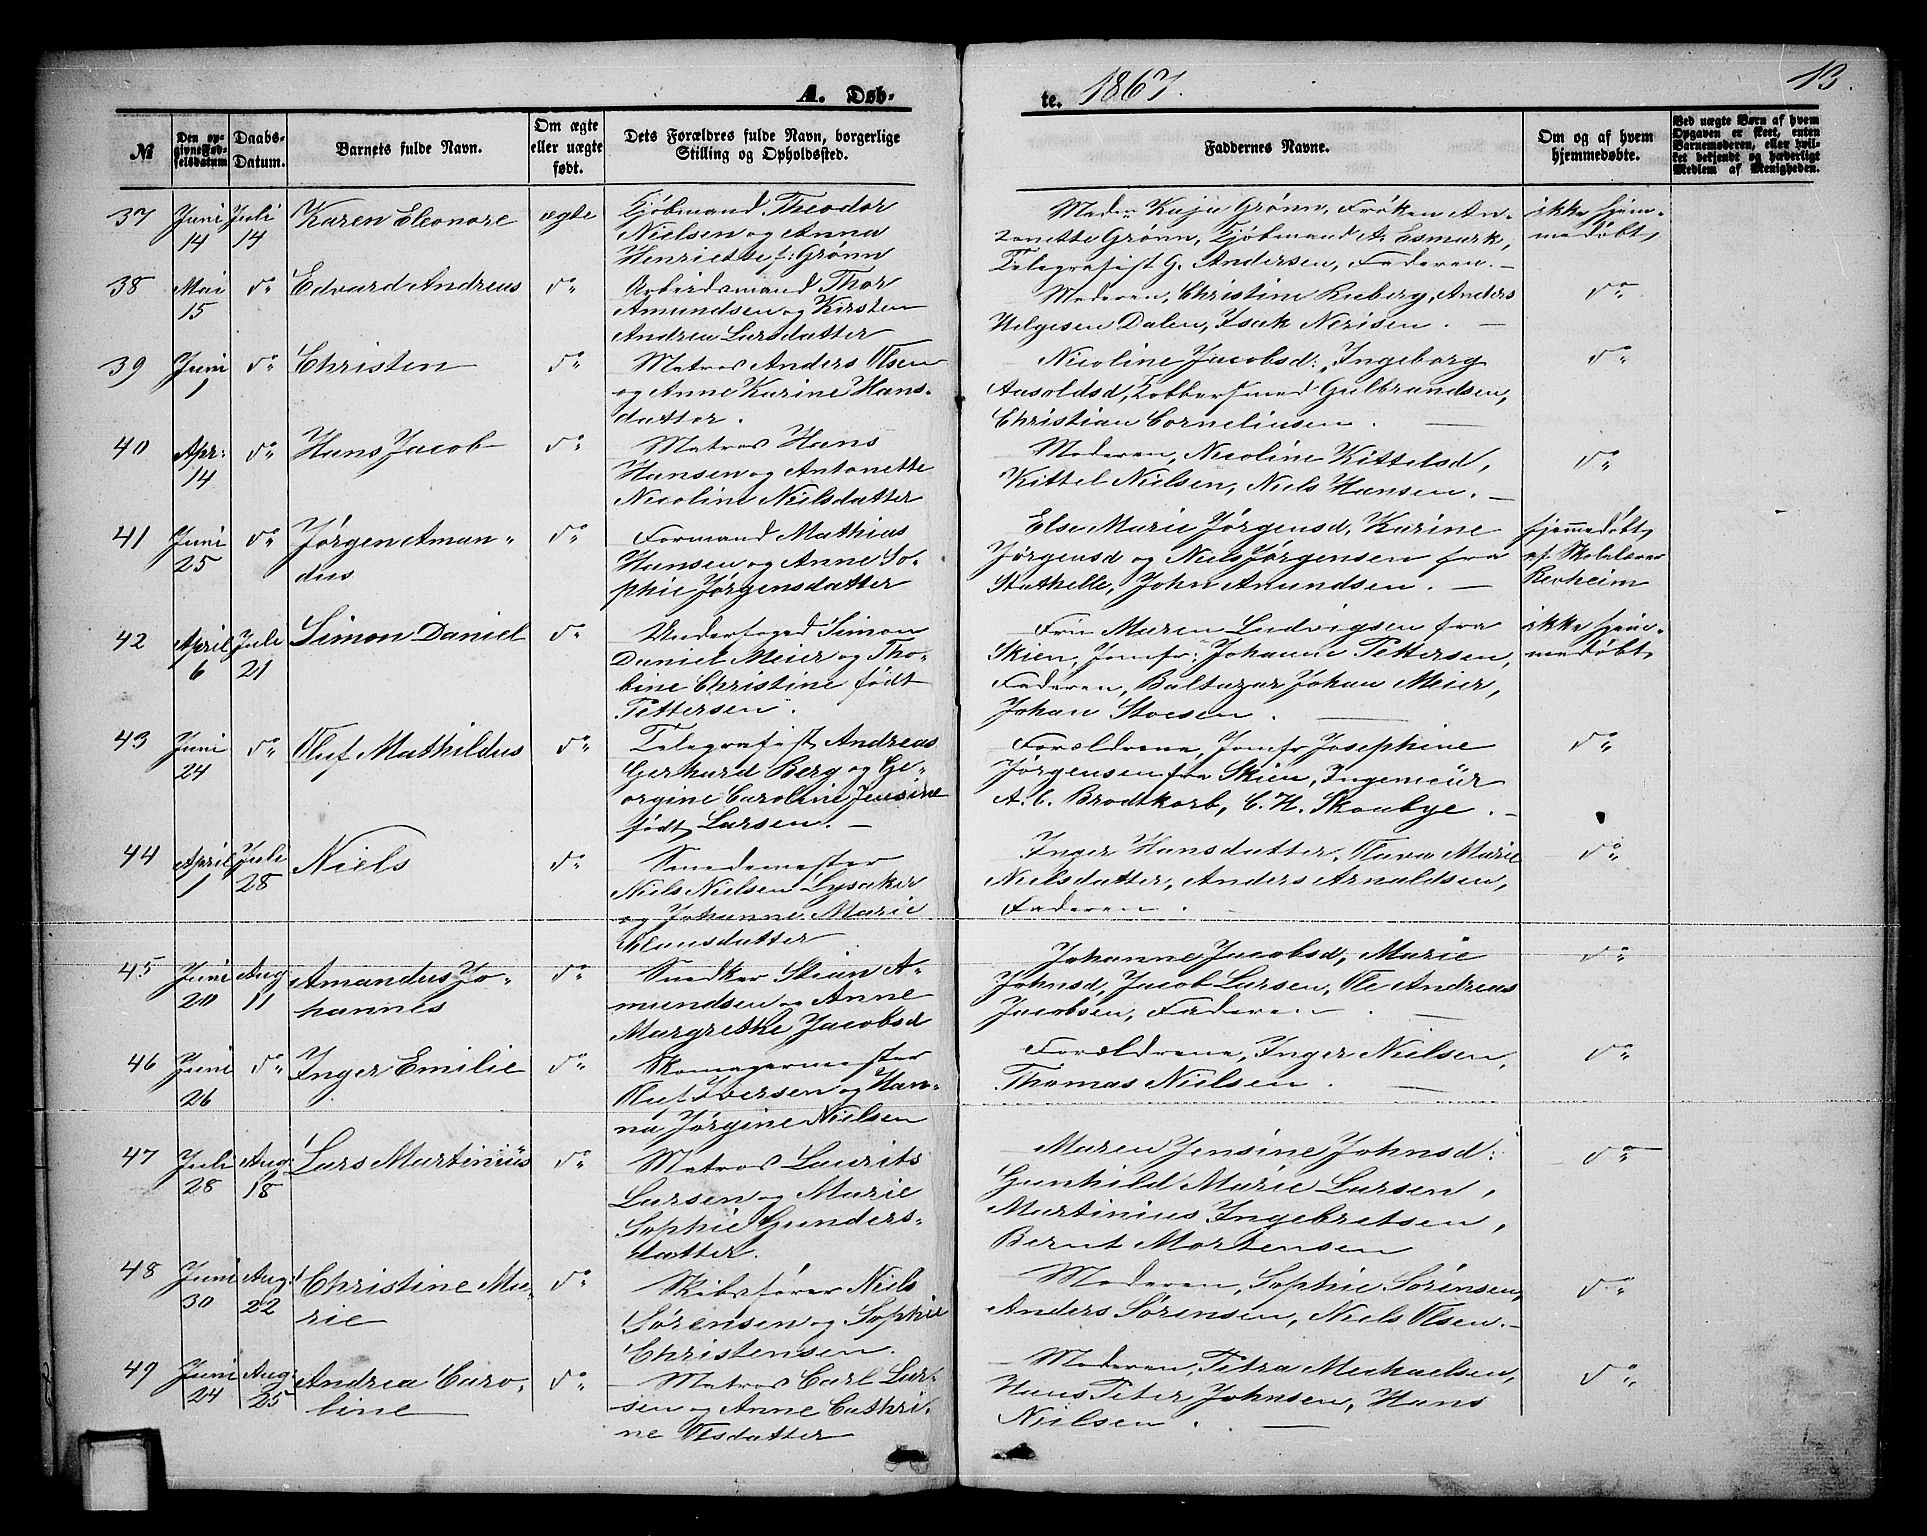 A. Døb-
te. 1867.
13.
№
Den op-
givne Fød-
selsdatum
Daabs-
Datum.
Barnets fulde Navn.
Om ægte
eller uægte
født.
Dets Forældres fulde Navn, borgerlige
Stilling og Opholdssted.
Faddernes Navne.
Om og af hvem
hjemmedøbte.
Ved uægte Børn af hvem
Opgaven er skeet, enten
Barnemoderen, eller hvil-
ket bekjendt og hæderligt
Medlem af Menigheden.
37
Juni
14
Juli
14
Karen Eleonore
ægte
Kjøbmand Theodor
Nielsen og Anna
Henriette f: Grønn
Mad: Kaja Grønn, Frøken An-
tonette Grønn, Kjøbmand A. Esmark,
Telegrafist G. Andersen, Faderen. —
ikke hjem-
medøbt,
38
Mai
15
do
Edvard Andreas
do
Arbeidsmand Thor
Amundsen og Kirsten
Andrea Larsdatter
Moderen, Christine Ruberg, Anders
Helgesen Dalen, Isak Nerisen. —
do
39
Juni
1
do
Christen
do
Matros Anders Olsen
og Anne Karine Hans-
datter.
Nicoline Jacobsd:, Ingeborg
Aasoldsd, Kobbersmed Gulbrandsen,
Christian Corneliusen. —
do
40
Apr:
14
do
Hans Jacob
do
Matros Hans
Hansen og Antonette
Nicoline Nielsdatter
Moderen, Nicoline Kittelsd,
Kittel Nielsen, Niels Hansen. —
do
41
Juni
25
do
Jørgen Aman-
dus
do
Formand Mathias
Hansen og Anne So-
phie Jørgensdatter
Else Marie Jørgensd, Karine
Jørgensd og Niels Jørgensen fra
Stathelle, John Amundsen. —
hjemmedøbt,
af Skolelærer
42
April
6
Juli
21
Simon Daniel
do
Underfoged Simon
Daniel Meier og Tho-
bine Christine født
Pettersen.
Fru Maren Ludvigsen fra
Skien, Jomfr: Johanne Pettersen,
Faderen, Baltazar Johan Meier,
Johan Stoesen. —
ikke hjem-
medøbt,
43
Juni
24
do
Oluf Mathildus
do
Telegrafist Andreas
Gerhard Berg og Ge-
orgine Caroline Jensine
født Larsen. —
Forældrene, Jomfr Josephine
Jørgensen fra Skien, Ingeniør
A. C. Brodtkorb, C. H. Skoubye. —
do
44
April
1
Juli
28
Niels
do
Smedemester
Niels Nielsen Lysaker
og Johanne Marie
Hansdatter
Inger Hansdatter, Olava Marie
Nielsdatter, Anders Arnaldsen,
Faderen. —
do
45
Juni
20
Aug
11
Amandus Jo-
hannes
do
Snedker Stian A-
mundsen og Anne
Margrethe Jacobsd
Johanne Jacobsd, Marie
Johnsd, Jacob Larsen, Ole Andreas
Jacobsen, Faderen. —
do
46
Juni
26
do
Inger Emilie
do
Skomagermester
Oluf Iversen og Han-
na Jørgine Nielsen
Forældrene, Inger Nielsen,
Thomas Nielsen. —
do
47
Juli
28
Aug:
18
Lars Martinius
do
Matros Laurits
Larsen og Marie
Sophie Gunders-
datter.
Maren Jensine Johnsd:
Gunhild Marie Larsen,
Martinius Ingebretsen,
Bernt Mortensen
do
48
Juni
30
Aug:
22
Christine Ma-
rie
do
Skibsfører Niels
Sørensen og Sophie
Christensen.
Moderen, Sophie Sørensen,
Anders Sørensen, Niels Olsen. —
do
49
Juni
24
Aug:
25
Andrea Caro-
line
do
Matros Carl Lar-
sen og Anne Cathri-
ne Olsdatter
Moderen, Petra Michaelsen,
Hans Peter Johnsen, Hans
Nielsen. —
do